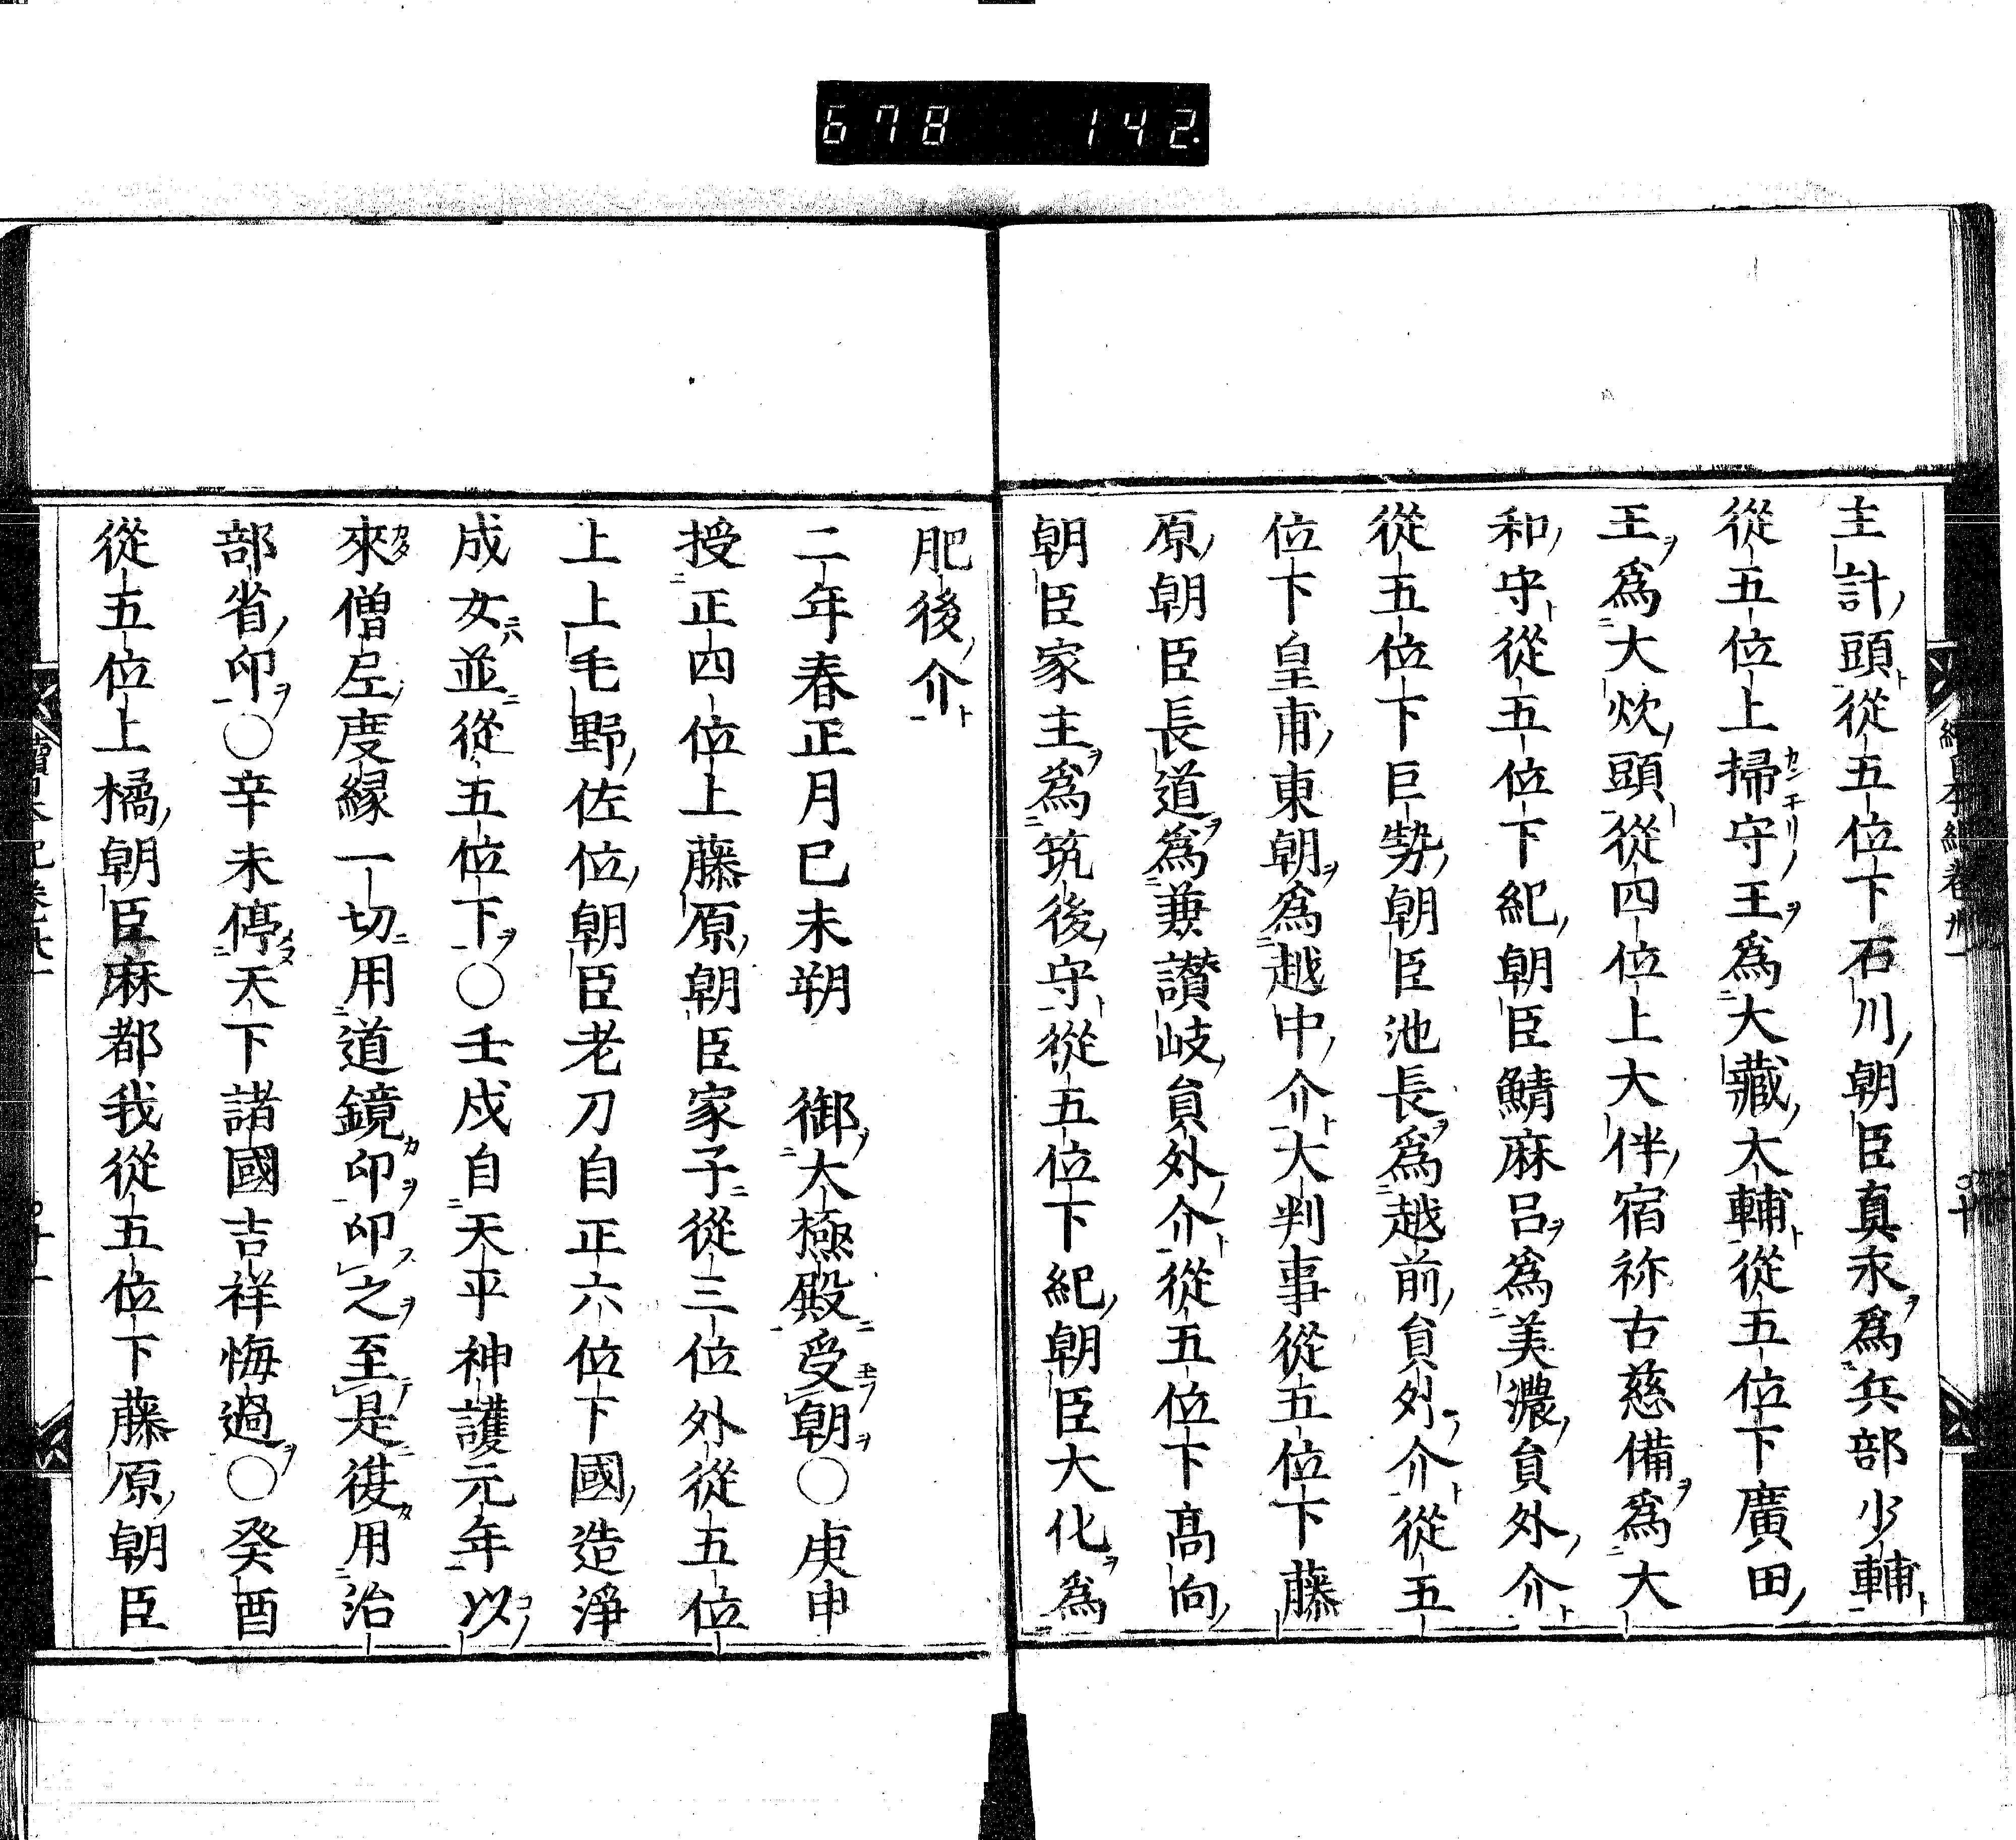 678 142
主計頭從五位下石川朝臣真永爲兵部少輔
從五位上掃守王爲大藏大輔從五位下廣田
王爲大炊頭從四位上大伴宿祢古慈備爲大
和守從五位下紀朝臣鯖麻呂爲美濃員外介
從五位下巨勢朝臣池長爲越前員外介從五
位下皇甫東朝爲越中介大判事從五位下藤
原朝臣長道爲兼讃岐員外介從五位下髙向
朝臣家主爲筑後守從五位下紀朝臣大化爲
肥後介
二年春正月已未朔 御大極殿受朝〇庚申
授正四位上藤原朝臣家子從三位外從五位
上上毛野佐位朝臣老刀自正六位下國造淨
成女並從五位下〇壬戌自天平神護元年以
來僧尼度縁一切用道鏡印印之至是復用治
部省印〇辛未停天下諸國吉祥悔過〇癸酉
從五位上橘朝臣麻都我從五位下藤原朝臣